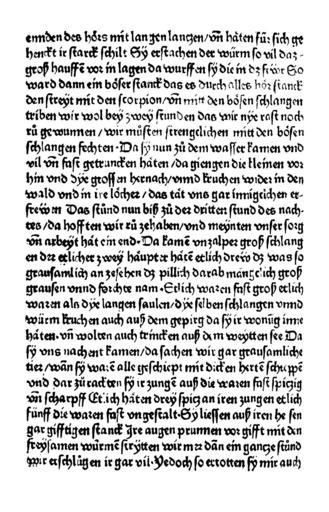 ennden des hörs mit langen lantzen/vn̄ hāten für sich ge
henckt ir starck schilt Sy erstachen der würm so vil daz
groß hauffen vor in lagen da wurffen sy die in dz feẅr So
ward dann ein böser stanck das es durch alles hör stanck
den streyt mit den scorpion/vn̄ mit den bösen schlangen
triben wir wol bey zwey stunden das wir nye rast noch
rů gewunnen/wir můsten strenglichen mit den bösen
schlangen fechten·Da sy nun zů dem wasser kamen vnd
vil vn̄ fast getruncken hāten/da giengen die kleinen vor
hin vnd dye grossen hernach/vnnd kruchen wider in den
wald vnd in ire löcher/das tāt vns gar innigclichen er-
frewen Das stůnd nun biß zů der dritter stund des nach
tes/da hofften wir rů zehaben/vnd meynten vnser sorg
vn̄ arbeyt hāt ein end·Da kamen vnzalper groß schlang
en der etlicher zwey haupter hātē etlich drew dz was so
grausamlich an zesehen dz pillich darab mānigclich groß
grausen vnnd forchte nam·Etlich waren fast groß etlich
waren als dye langen saulen/dye selben schlangen vnnd
würm kruchen auch auß dem gepirg da sy ir wonūg inne
hāten·vn̄ wolten auch trincken auß dem weytten see Da
sy vns nachent kamen/da sachen wir gar grausamliche
tier/wān sy warē alle geschiept mit dicken hertē schuppē
vnd dar zů rackten sy ir zungen auß die waren fast spiczig
vn̄ scharpff Etlich hāten drey spicz an iren zungen etlich
fünff die waren fast vngestalt·Sy liessen auß iren hesen
gar gifftigen stanck Ire augen prunnen vor gifft mit den
freysamen würmē strytten wir mer dān ein gancze stund
wir erschlůgen ir gar vil·Yedoch so ertotten sy mir auch